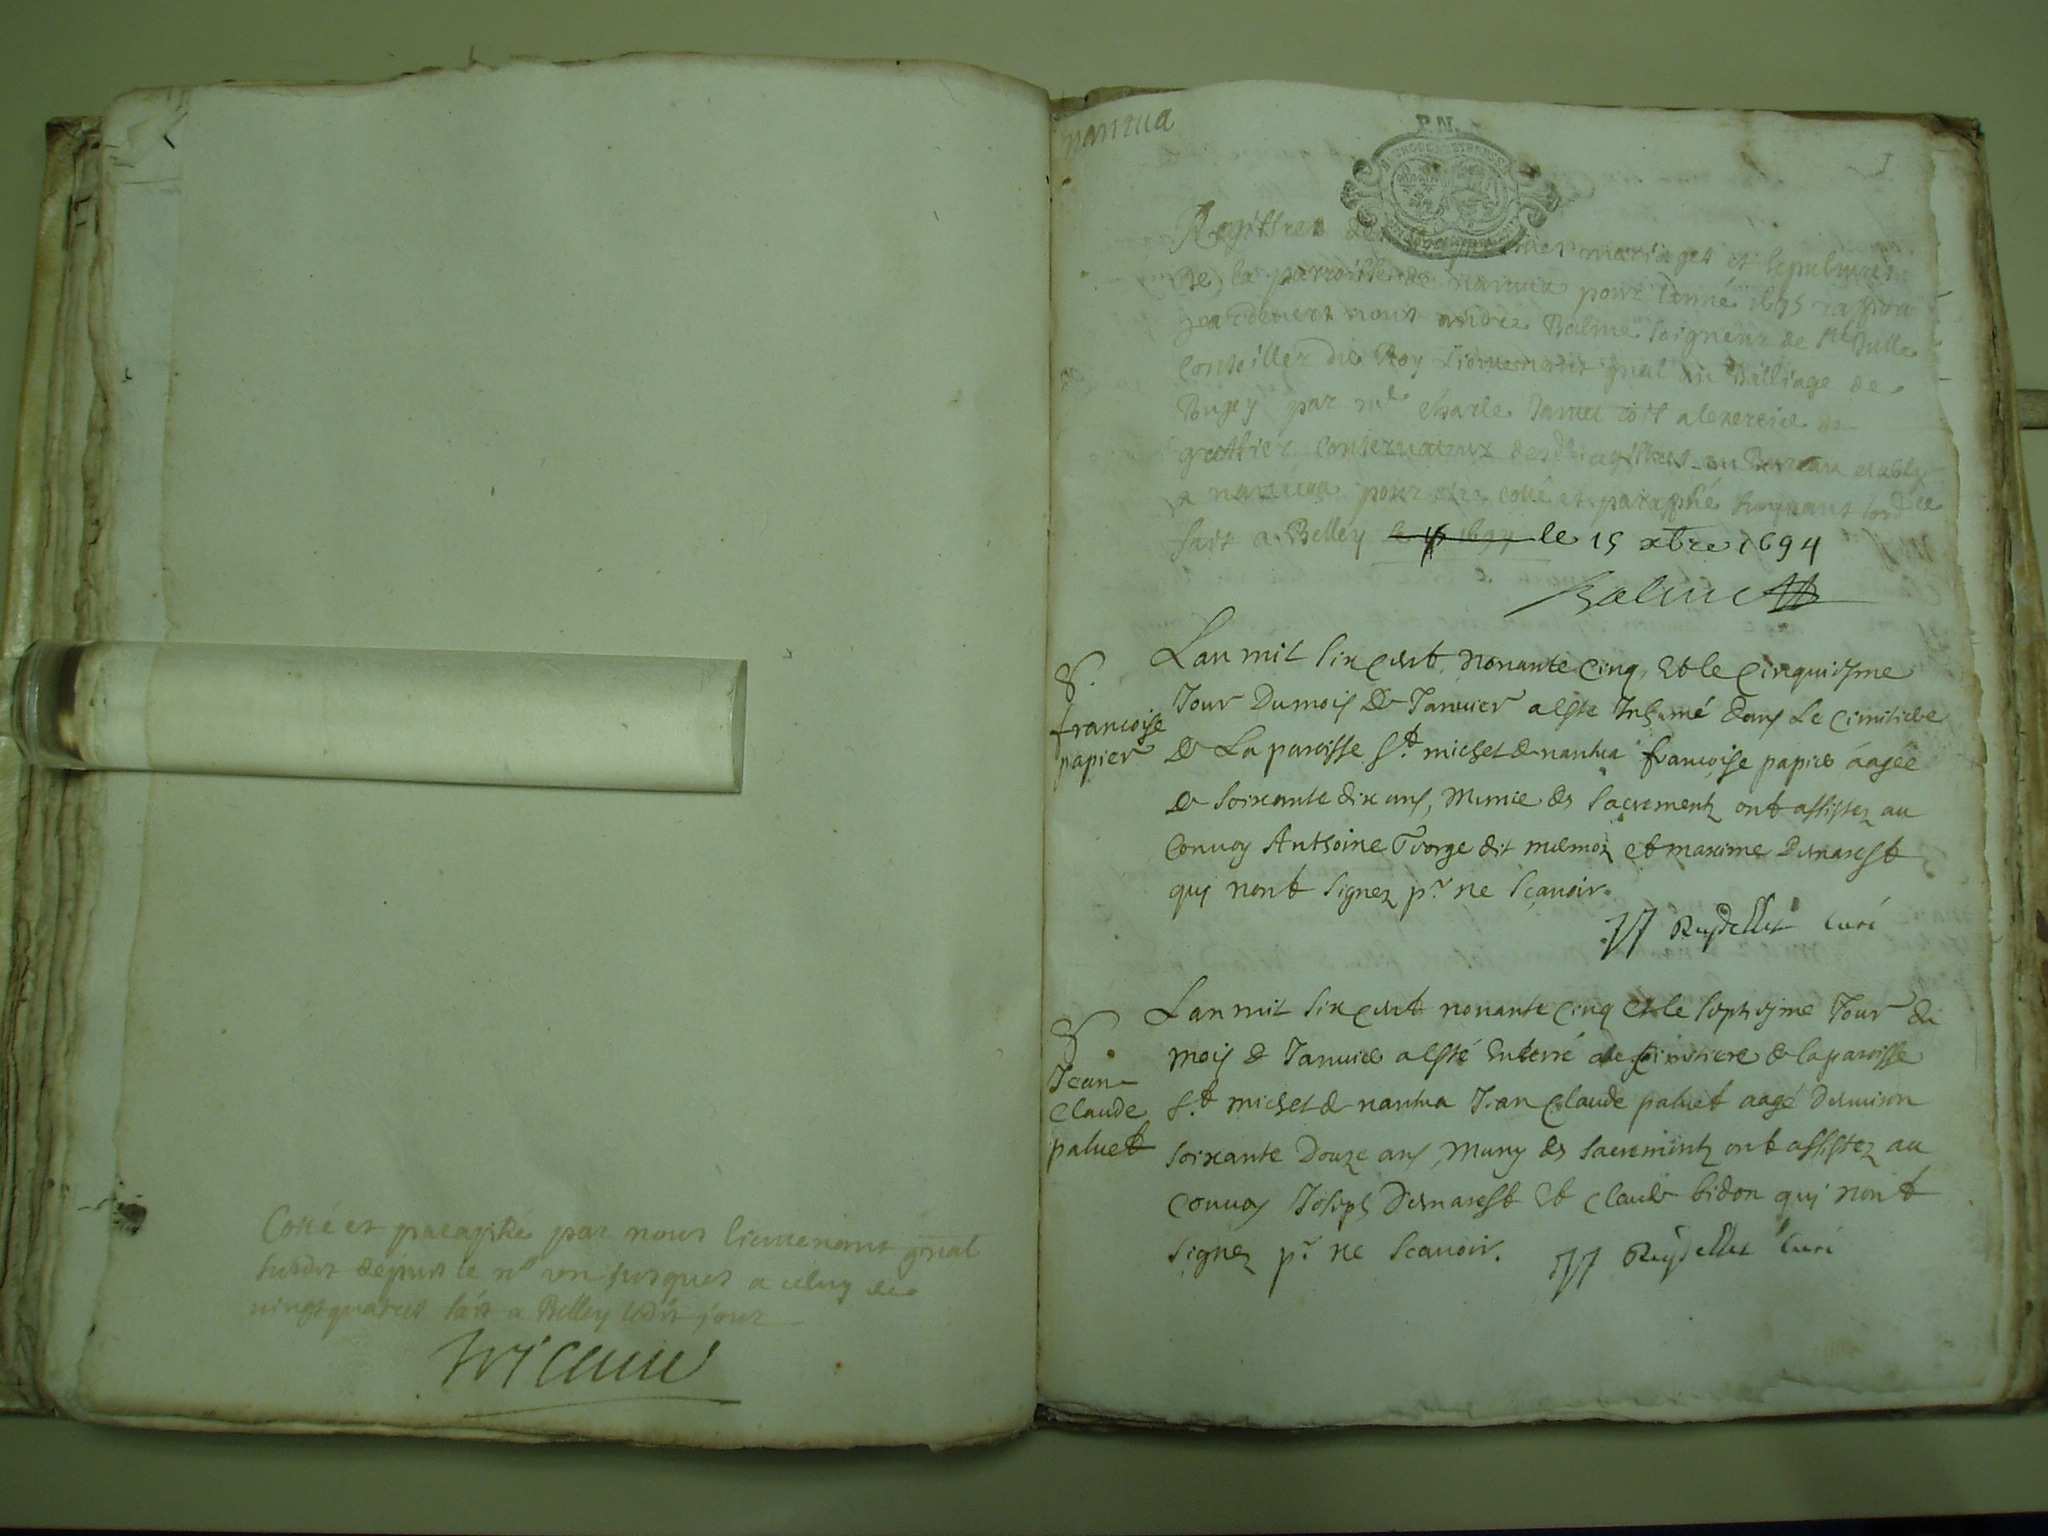 Cotté et paraphé par nous lieutenant gñal
susdit depuis le nº un jusques a celuy de
vingt quatre fait a Belley ledit jour
nantua
P.N.
1
Registres des mariages et sepultures
de la parroisse de nantua pour l'année 1695
pardevant nous andré Balme seigneur de Ste Julle
Conseiller du Roy Lieutenant gnal au Bailliage de
Bugey par me charle Janet
greffier conservateur des registres au Bureau etably
a nantua pour etre cotté et paraphé suyvant
fait a Belley le 15 xbre 1694
Balme
8.
francoise
papier
Lan mil six cent nonante cinq, et le cinquiesme
Jour du mois de Janvier a este Inhumé dans Le cimitiere
de La paroisse St michel de nantua francoise papier áagée
de soixante dix ans, Munie des sacrements ont assistez au
Convoy Anthoine George dit et maxime Demarest
quy nont signez pr ne sçavoir.
Curé
Jean
Claude
paluet
Lan mil six cent nonante cinq et le septiesme Jour du
mois de Janvier a esté Enterré cimitiere de la paroisse
St michel de nantua Jean Claude paluet aagé denviron
soixante Douze ans, Muny des sacrements ont assistez au
convoy Joseph Demarest et claude bidon qui nont
signez pr ne scavoir. Curé